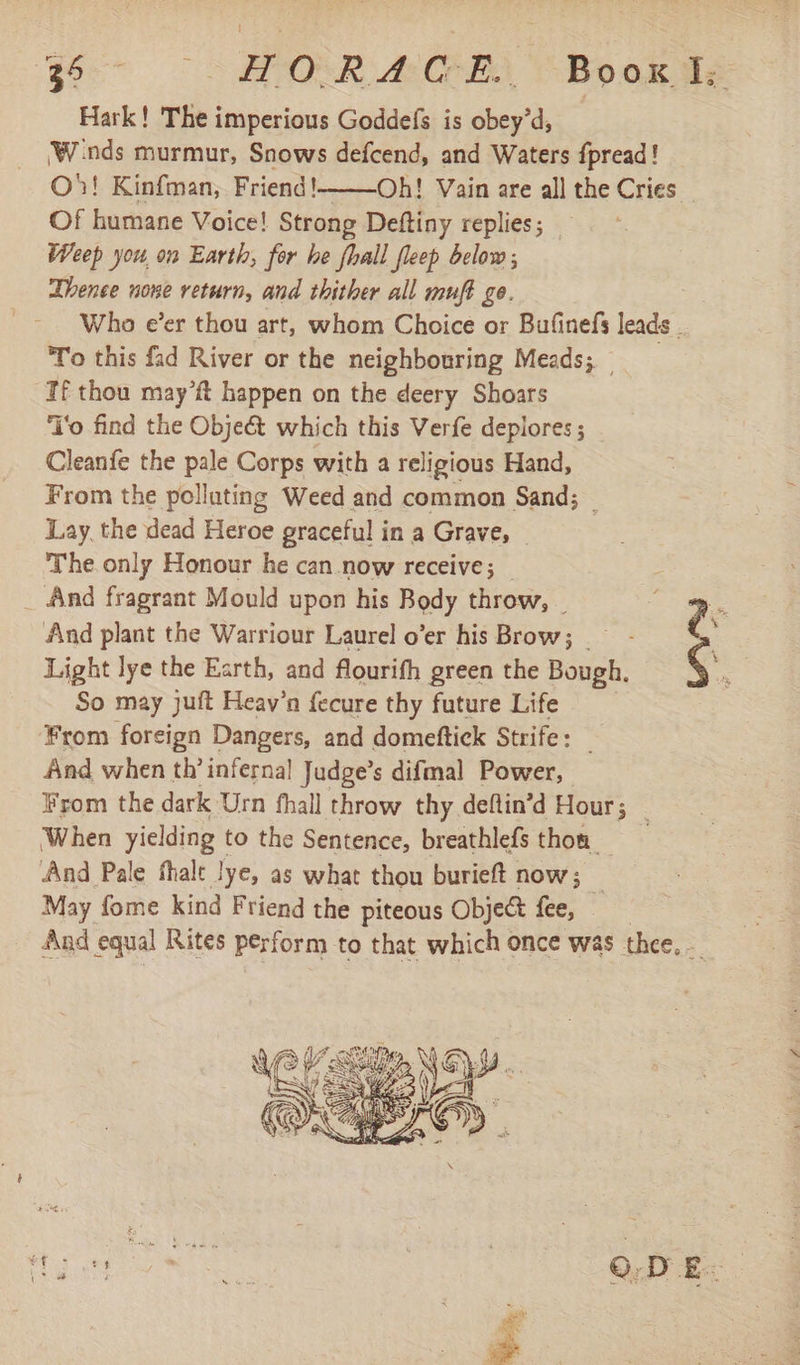 36 HORACE. Book I.
Hark! The imperious Goddeſs is obey'd,
Winds murmur, Snows deſcend, and Waters ſpread!
Oh! Kinſman, Friend!——Oh! Vain are all the Cries
Of humane Voice! Strong Deſtiny replies;
Weep you on Earth, for he ſhall ſleep below;
Thence none return, and thither all muſt go.
Who e'er thou art, whom Choice or Buſineſs leads
To this ſad River or the neighbouring Meads;
If thou may'ſt happen on the deery Shoars
To find the Object which this Verſe deplores;
Cleanſe the pale Corps with a religious Hand,
From the polluting Weed and common Sand;
Lay the dead Heroe graceful in a Grave,
The only Honour he can now receive;
And fragrant Mould upon his Body throw,
And plant the Warriour Laurel o'er his Brow;
Light lye the Earth, and flouriſh green the Bough.
So may juſt Heav'n ſecure thy future Life
From foreign Dangers, and domeſtick Strife:
And when th' infernal Judge's diſmal Power,
From the dark Urn ſhall throw thy deſtin'd Hour;
When yielding to the Sentence, breathleſs thou
And Pale ſhalt lye, as what thou burieſt now;
May ſome kind Friend the piteous Object ſee,
And equal Rites perform to that which once was thee.
ODE